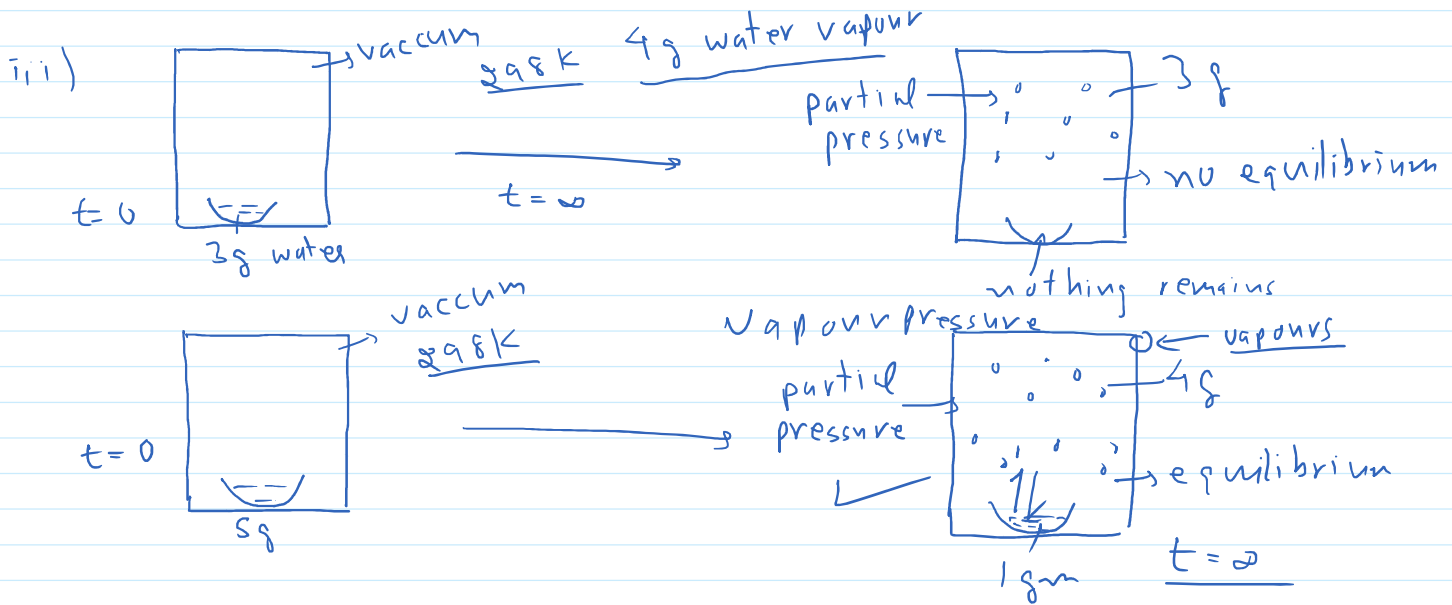 iii)
vaccum
298K
4g water vapour
t=0
3g water
t=∞
partial
pressure
3g
no equilibrium
nothing remains
vaccum
298K
t=0
5g
Vapour Pressure
partial
pressure
vapours
4g
equilibrium
1gm
t=∞